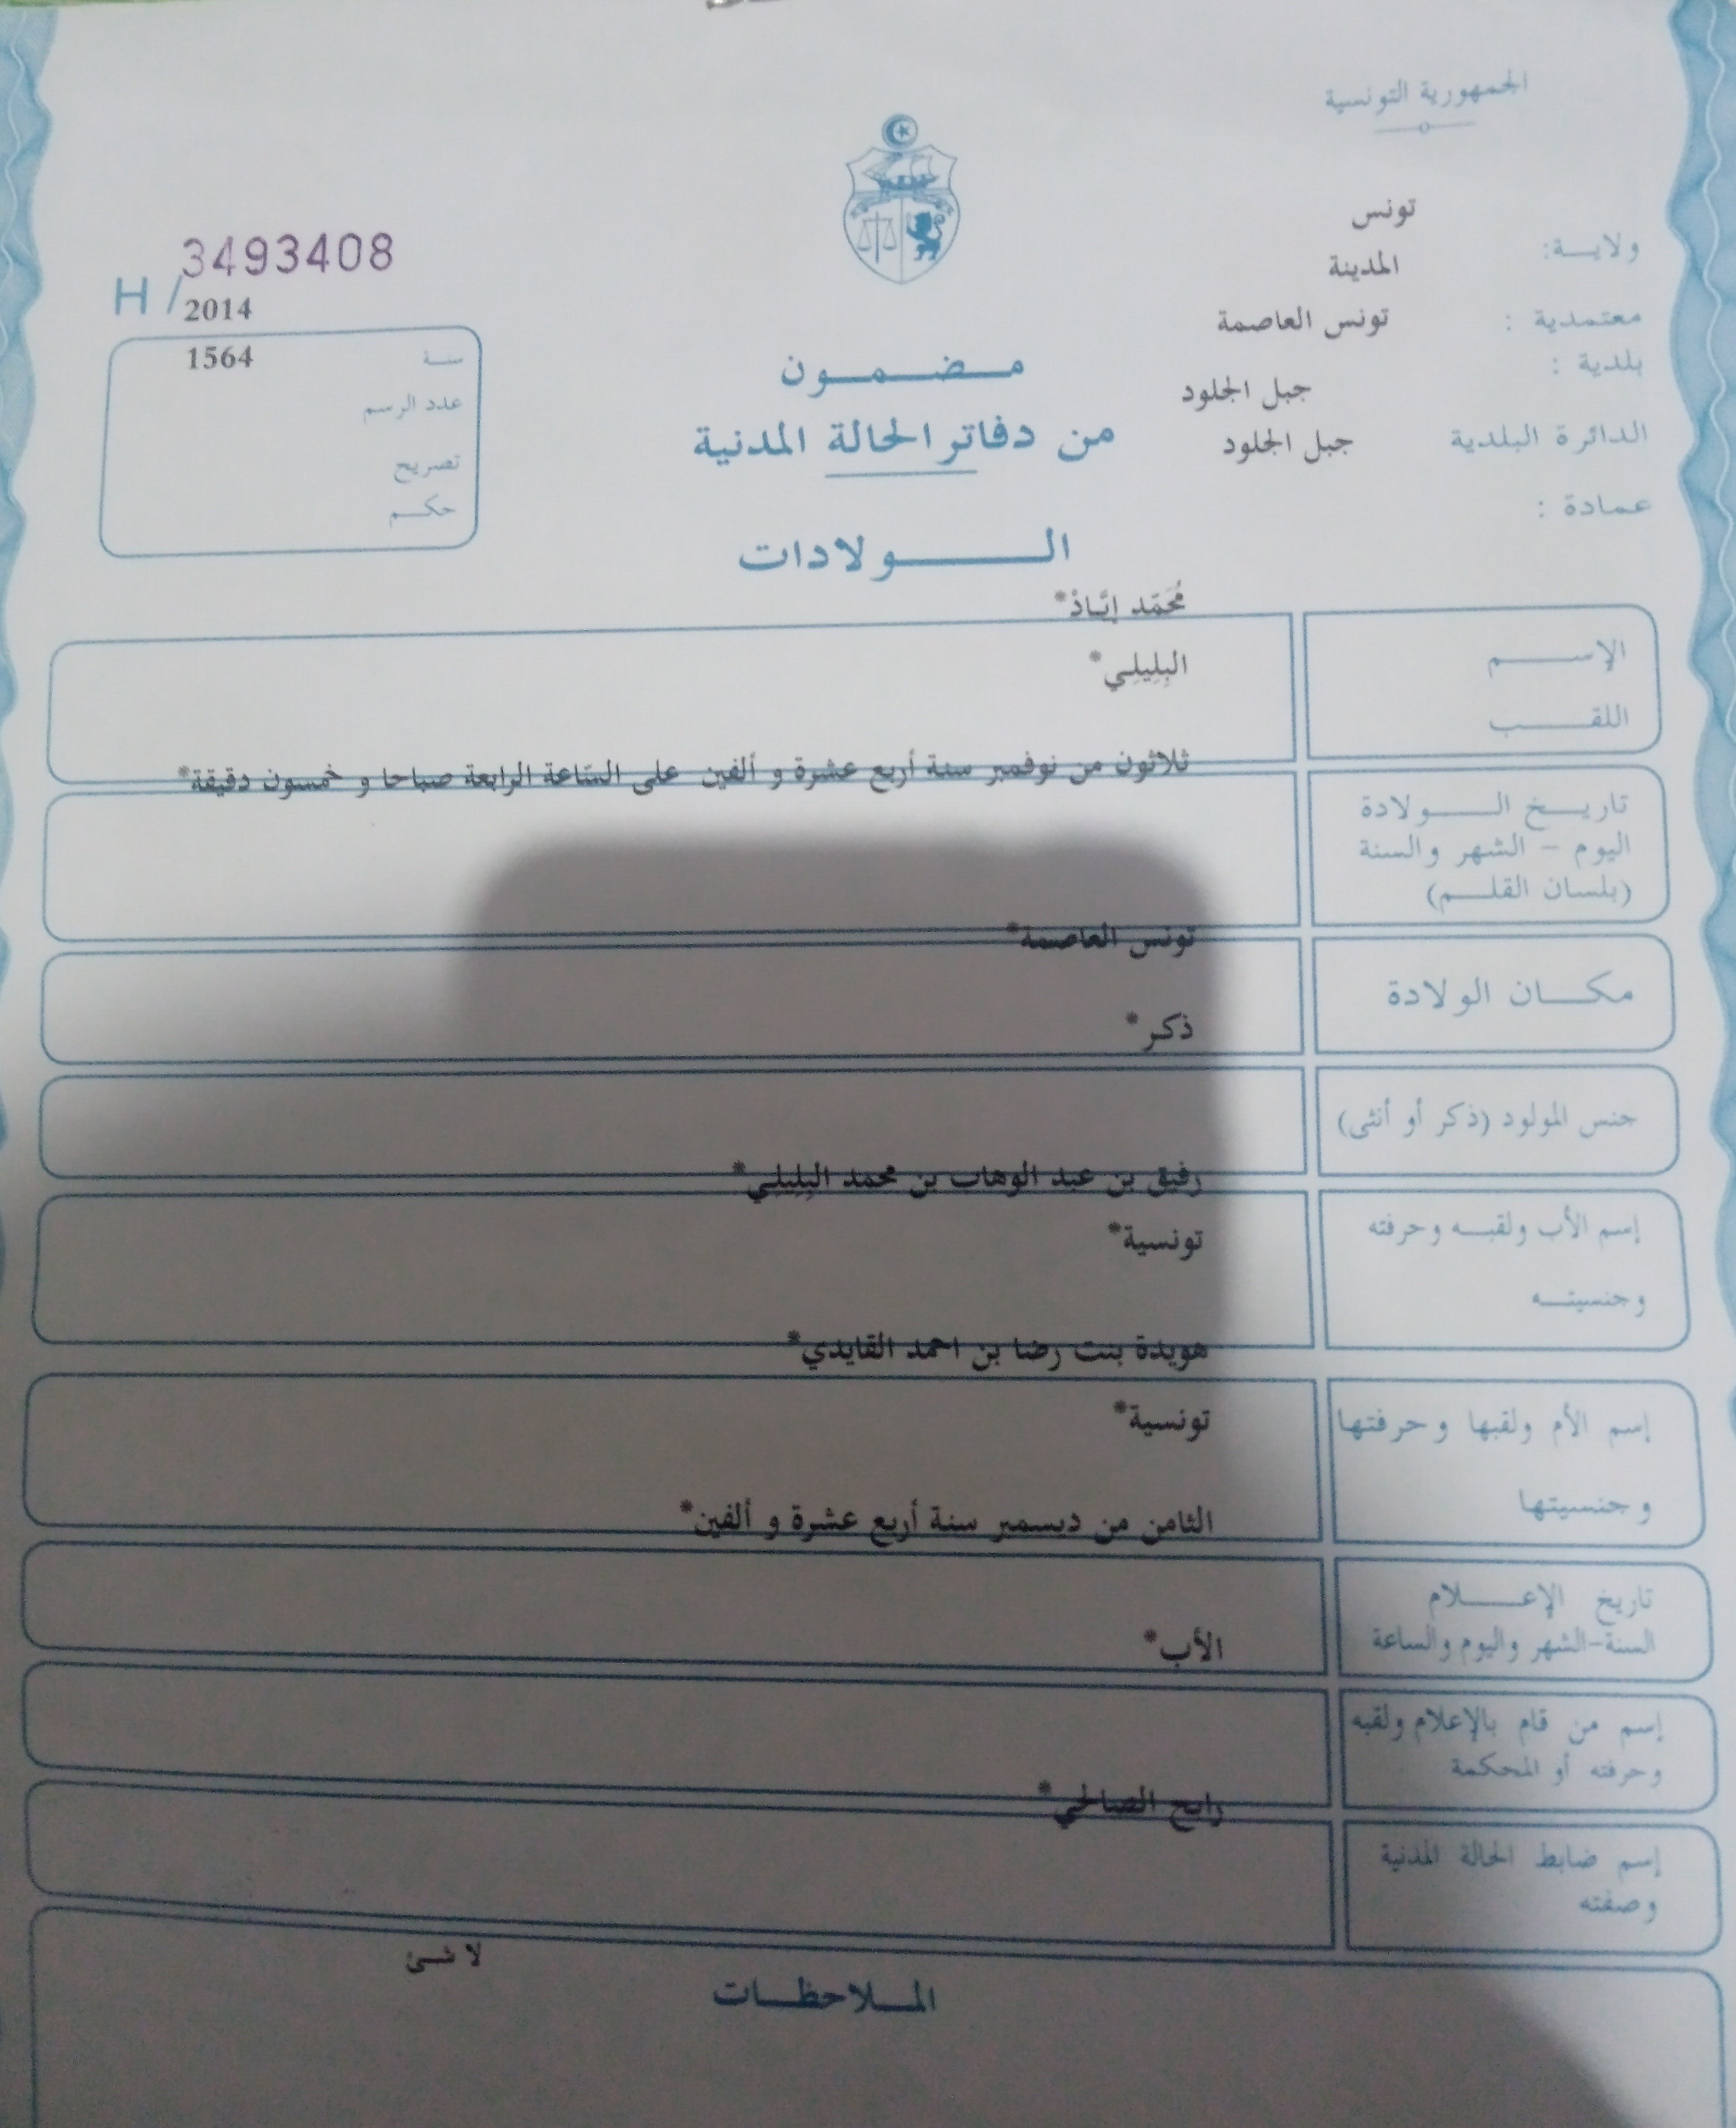 الجمهورية التونسية
تونس
ولايـــة:
المدينة
معتمدية :
تونس العاصمة
بلدية :
جبل الجلود
الدائرة البلدية
جبل الجلود
عمادة :
3493408
H /
2014
سنة
1564
عدد الرسم
تصريح
حكــم
مــضــمــون
من دفاتر الحالة المدنية
الـــــولادات
مُحَمّد إيَّاذْ*
الإســـــم
البِلِيلِي*
اللقـــب
ثلاثون من نوفمبر سنة أربع عشرة و ألفين على السّاعة الرابعة صباحا و خمسون دقيقة*
تاريـــخ الـــــولادة
اليوم – الشهر والسنة
(بلسان القلـــم)
تونس العاصمة*
مكـــان الولادة
ذكر*
جنس المولود (ذكر أو أنثى)
رفيق بن عبد الوهاب بن محمد البِلِيلِي*
إسم الأب ولقبـــه وحرفته
تونسية*
وجنسيتـــه
هويدة بنت رضا بن احمد القايدي*
إسم الأم ولقبها وحرفتها
تونسية*
وجنسيتها
الثامن من ديسمبر سنة أربع عشرة و ألفين*
تاريخ الإعـــــلام
السنة-الشهر واليوم والساعة
الأب*
إسم من قام بالإعلام ولقبه
وحرفته أو المحكمة
رابح الصالحي*
إسم ضابط الحالة المدنية
وصفته
لا شئ
المـــلاحظـــات